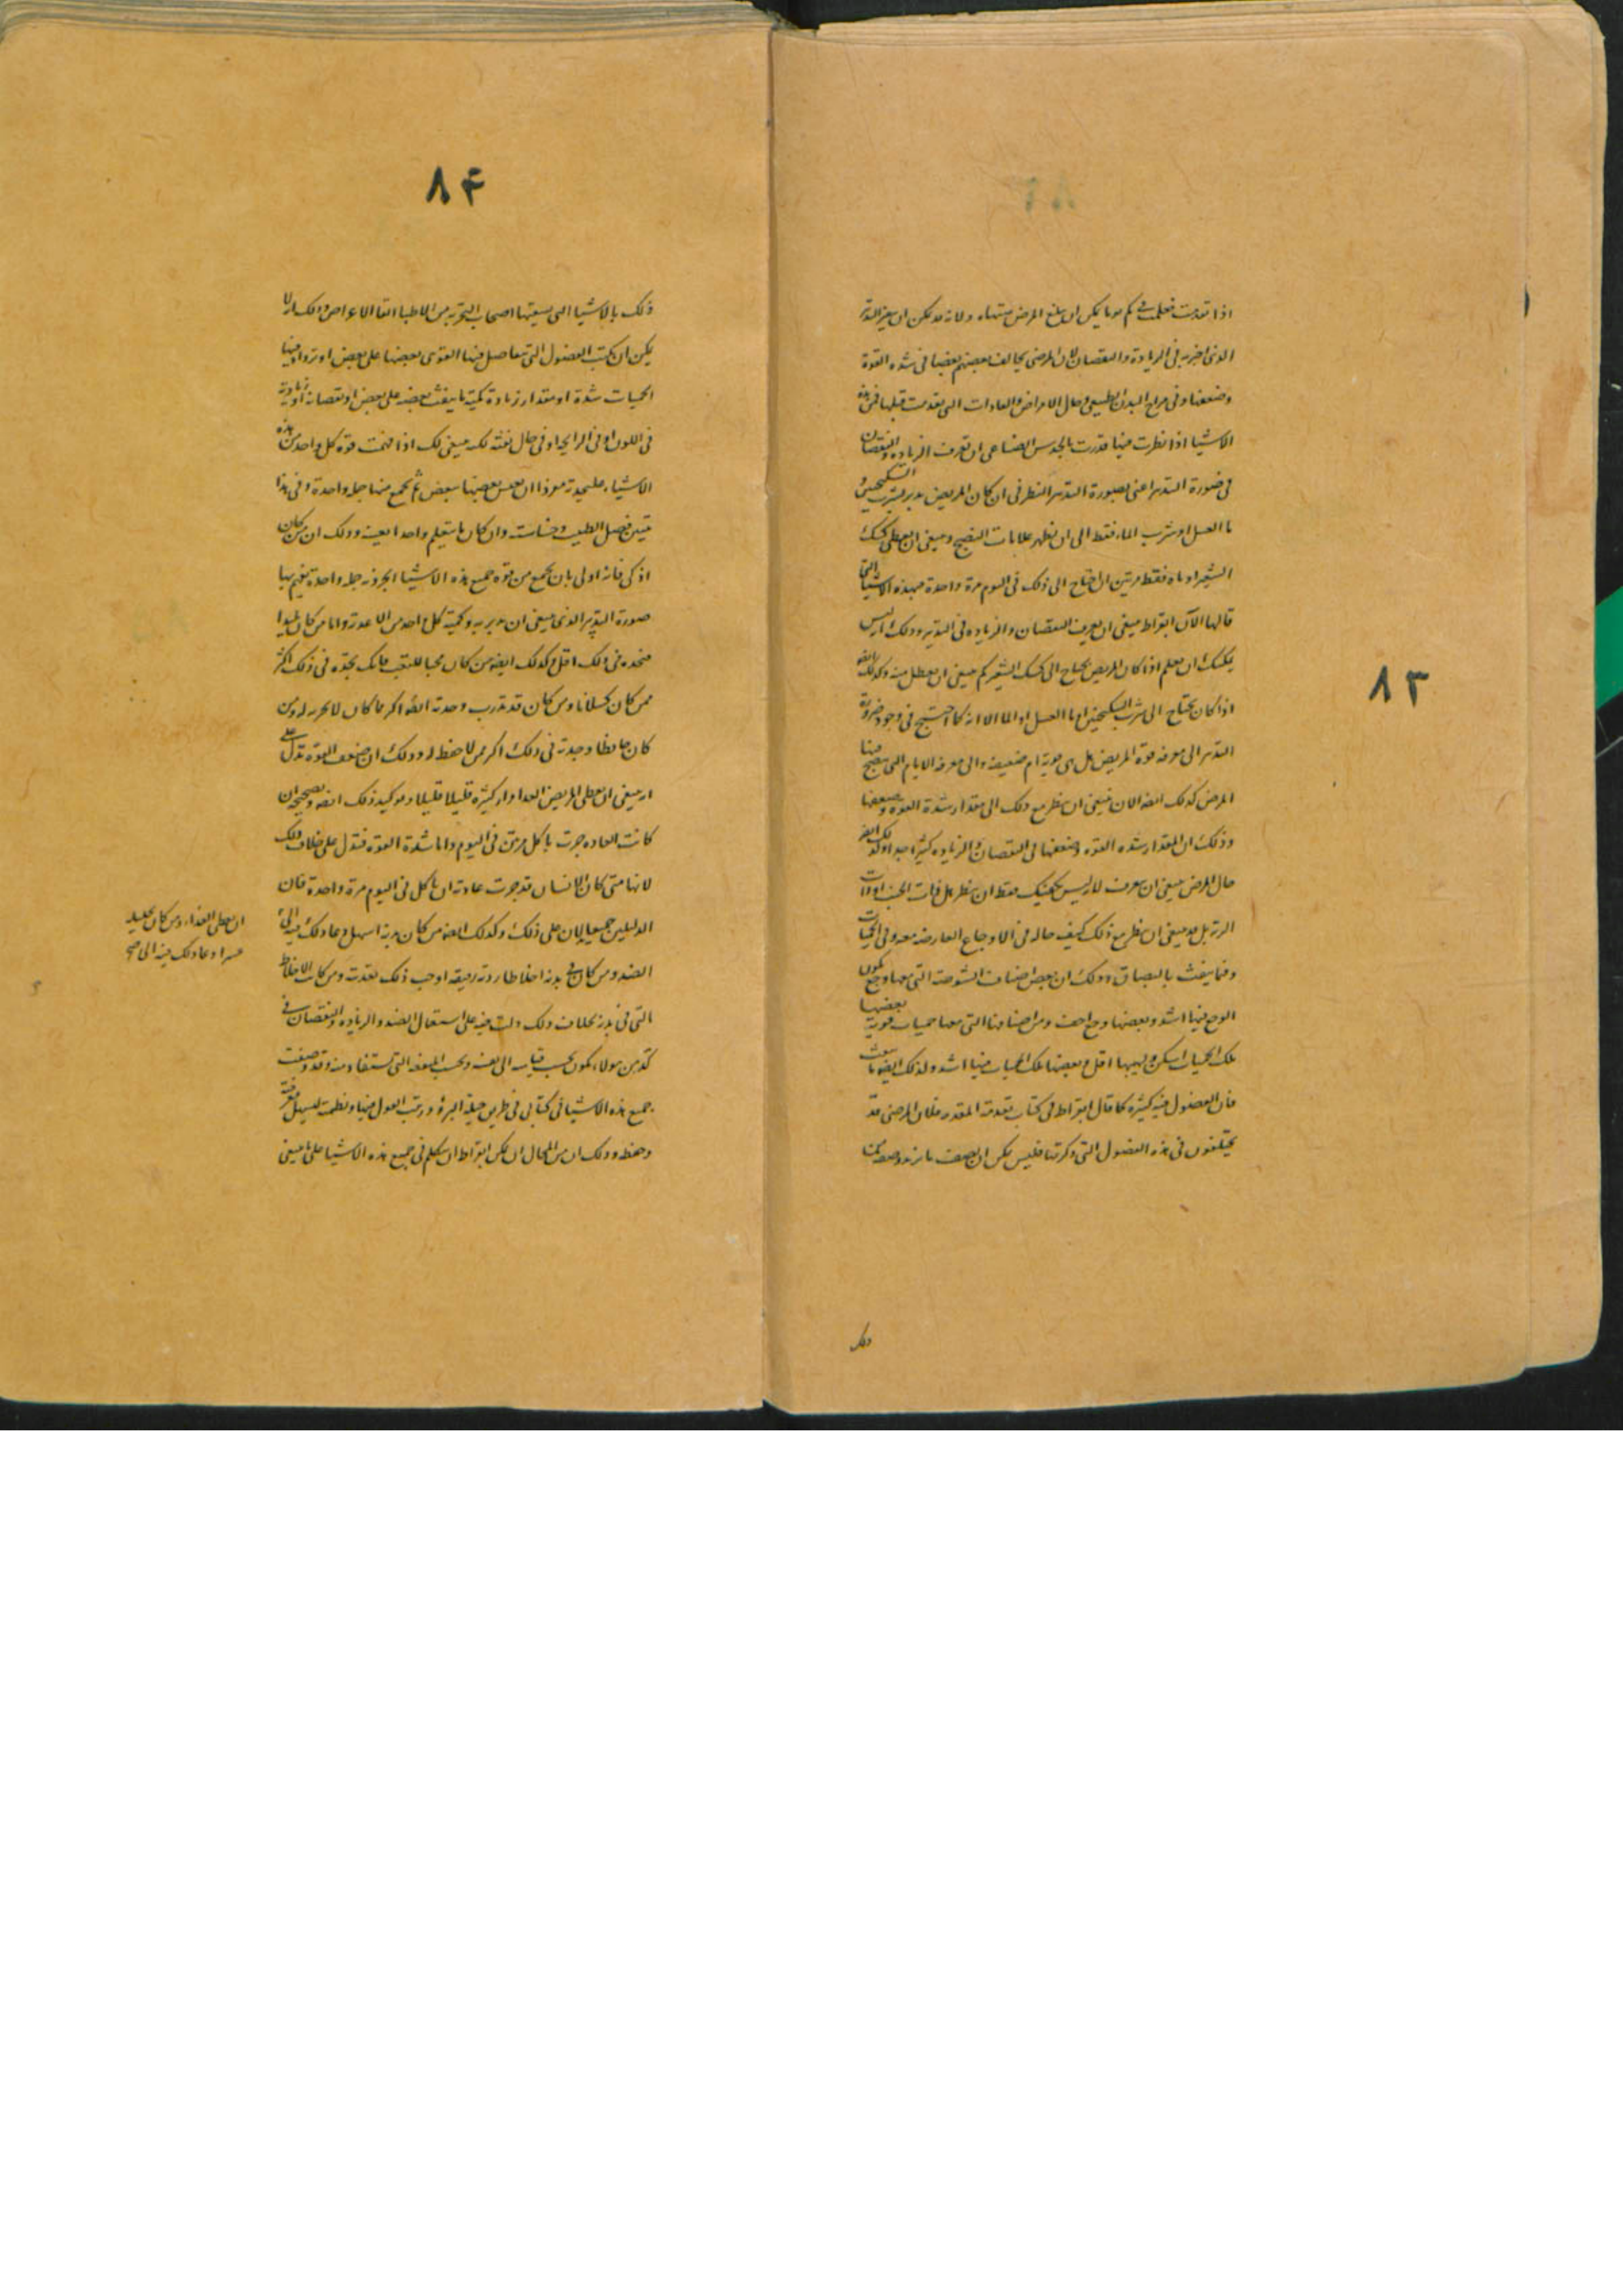 ٨٣
اذا تقدمت فعلمت في كم يوما يمكن ان يبلغ المرض منتهاه ولانه قد يمكن ان يتغير التدبير
الذي اخبر به في الزيادة والنقصان لان المرضى يخالف بعضهم بعضا في شده القوة
وضعفها وفي مزاج البدن الطبيعي وحال الامراض والعادات التي تقدمت قبلها فمن هذه
الاشيا اذا نظرت فيها قدرت بالحدس الصناعي ان تعرف الزياده والنقصان
في صورة التدبير اعني بصورة التدبير النظر في ان كان المريض يدبر بشرب السكنجبين و
ما العسل او شرب الماء فقط الى ان يظهر علامات النضج وينبغي ان يعطى كشك
الشعير او ماه فقط مرتين ان احتاج الى ذلك في اليوم مرة واحدة فبهذه الاشيا التي
قالها الآن ابقراط ينبغي ان يعرف النقصان والزياده في التدبير وذلك انه ليس
يمكنك ان تعلم اذا كان المريض يحتاج الى كشك الشعير كم ينبغي ان يعطى منه وكذلك ايضا
اذا كان يحتاج الى شرب السكنجبين او ما العسل او الما الا انه كما احتيج في وجود ضرورة
التدبير الى معرفه قوة المريض هل هي قوية ام ضعيفه والى معرفه الايام التي ينضج فيها
المرض كذلك ايضه الان ينبغي ان ينظر مع ذلك الى مقدار شدة القوه وضعفها
وذلك ان المقدار شده القوه وضعفها في النقصان والزياده كثير اجدا وكذلك ايضه
حال المرض ينبغي ان يعرف لانه ليس يكفيك فقط ان ينظر هل ذات الجنب او ذات
الرئة بل قد ينبغي ان ينظر مع ذلك كيف حاله في الاوجاع العارضه معه وفي الحميات
وفما ينفث بالبصاق وذلك ان بعض اصناف الشوصة التي معها وجع يكون
الوجع فيها اشد وبعضها وجع اخف ومن اصنافها التي معها حميات قوية بعضها
تلك الحميات اسكن ولهيبها اقل وبعضها تلك الحميات فيها اشد ولذلك ايضه ما ينفث
فان الفضول فيه كثيره كما قال ابقراط في كتاب تقدمة المعرفه فلان المرضى قد
يختلفون في هذه الفضول التي ذكرتها فليس يمكن ان يصف
ذلك
٨٤
ذلك بالاشيا التي يسميها اصحاب التجربه من الاطبا اتفاق الاعراض وذلك انه لا
يمكن ان يكتب الفضول التي يتفاضل فيها القوى بعضها على بعض او تزداد فيها
الحميات شدة او مقدار زيادة كمية ما ينفث بعضه على بعض او نقصانه او زيادته
في اللون او في الرايحه او في حال نفثه لكنه ينبغي لك اذا فهمت قوه كل واحد من هذه
الاشياء على حدته مفردا ان تقيس بعضها ببعض ثم تجمع منها جمله واحدة وفي هذا
يتبين فضل الطبيب وان كان ما يتعلم واحدا بعينه وذلك ان من كان
اذكى فانه اولى بان يجمع من قوه جميع هذه الاشيا الجزويه جمله واحدة يفهم بها
صورة التدبير الذي ينبغي ان يدبر به وكمية كل واحد من الاغذية واما من كان بليدا
فتجده في ذلك اقل وكذلك ايضه من كان محبا للتعب فانك تجده في ذلك اكثر
ممن كان كسلانا ومن كان قد تدرب وجدته ايضه اكثر مما كان لا تجربه له ومن
كان حافظا وجدته في ذلك اكثر ممن لا حفظ له وذلك ان ضعف القوه تدل على
انه ينبغي ان يعطى المريض الغدا مرار كثيره قليلا قليلا ويوكد ذلك ايضه ويصححه ان
كانت العاده جرت باكل مرتين في اليوم واما شدة القوه فتدل على خلاف ذلك
لانها متى كان الانسان قد جرت عادته ان ياكل في اليوم مرة واحدة فان
الدليلين جميعا يدلان على ذلك وكذلك ايضه من كان بدنه اسهل وعاد ذلك فيه الى
الضد ومن كان في بدنه اخلاطا رديه رقيقه اوجب ذلك تغذيته ومن كانت الاخلاط
التي في بدنه بخلاف ذلك دلت فيه على استعمال الضد والزياده والنقصان في
كل من هولاء يكون بحسب قياسه الى نفسه وبحسب المنفعه التي تستفاد منه وقد وصفت
جميع هذه الاشيا في كتابي في طريق حيلة البرؤ ورتبت القول فيها ونظمت ليسهل معرفته
وحفظه وذلك ان من المحال ان يمكن ابقراط ان يتكلم في جميع هذه الاشيا على ما ينبغي
ان يعطى الغذاء ومن كان تحليله
عسرا وعاد ذلك فيه الى